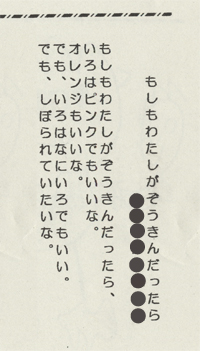 もしもわたしがぞうきんだったら
●●●●●●●●
もしもわたしがぞうきんだったら、
いろはピンクでもいいな。
オレンジもいいな。
でも、いろはなにいろでもいい。
でも、しぼられていたいな。